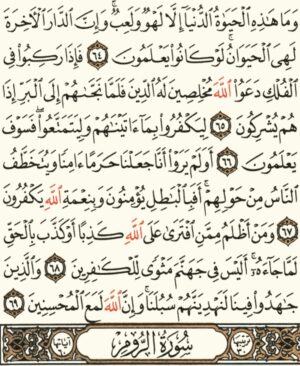 وَمَا هَٰذِهِ ٱلْحَيَوٰةُ ٱلدُّنْيَآ إِلَّا لَهْوٌ وَلَعِبٌ ۚ وَإِنَّ ٱلدَّارَ ٱلْءَاخِرَةَ
لَهِىَ ٱلْحَيَوَانُ ۚ لَوْ كَانُوا۟ يَعْلَمُونَ ٦٤ فَإِذَا رَكِبُوا۟ فِى
ٱلْفُلْكِ دَعَوُا۟ ٱللَّهَ مُخْلِصِينَ لَهُ ٱلدِّينَ فَلَمَّا نَجَّىٰهُمْ إِلَى ٱلْبَرِّ إِذَا
هُمْ يُشْرِكُونَ ٦٥ لِيَكْفُرُوا۟ بِمَآ ءَاتَيْنَٰهُمْ وَلِيَتَمَتَّعُوا۟ ۖ فَسَوْفَ
يَعْلَمُونَ ٦٦ أَوَلَمْ يَرَوْا۟ أَنَّا جَعَلْنَا حَرَمًا ءَامِنًا وَيُتَخَطَّفُ
ٱلنَّاسُ مِنْ حَوْلِهِمْ ۚ أَفَبِٱلْبَٰطِلِ يُؤْمِنُونَ وَبِنِعْمَةِ ٱللَّهِ يَكْفُرُونَ
٦٧ وَمَنْ أَظْلَمُ مِمَّنِ ٱفْتَرَىٰ عَلَى ٱللَّهِ كَذِبًا أَوْ كَذَّبَ بِٱلْحَقِّ
لَمَّا جَآءَهُۥٓ ۚ أَلَيْسَ فِى جَهَنَّمَ مَثْوًى لِّلْكَٰفِرِينَ ٦٨ وَٱلَّذِينَ
جَٰهَدُوا۟ فِينَا لَنَهْدِيَنَّهُمْ سُبُلَنَا ۚ وَإِنَّ ٱللَّهَ لَمَعَ ٱلْمُحْسِنِينَ ٦٩
سُورَةُ ٱلرُّومِ